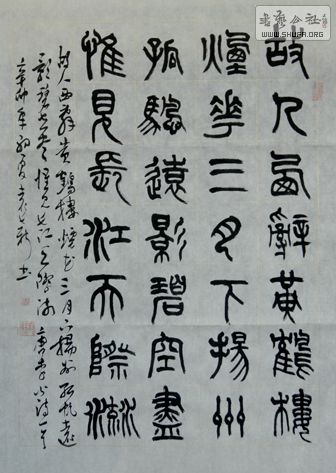 书法公社
www.SHUFA.ORG
故人西辭黃鶴樓
煙花三月下揚州
孤帆遠影碧空盡
惟見長江天際流
故人西辭黃鶴樓煙花三月下揚州孤帆遠
影碧空盡惟見長江天際流唐李白詩一首
辛卯年初夏書